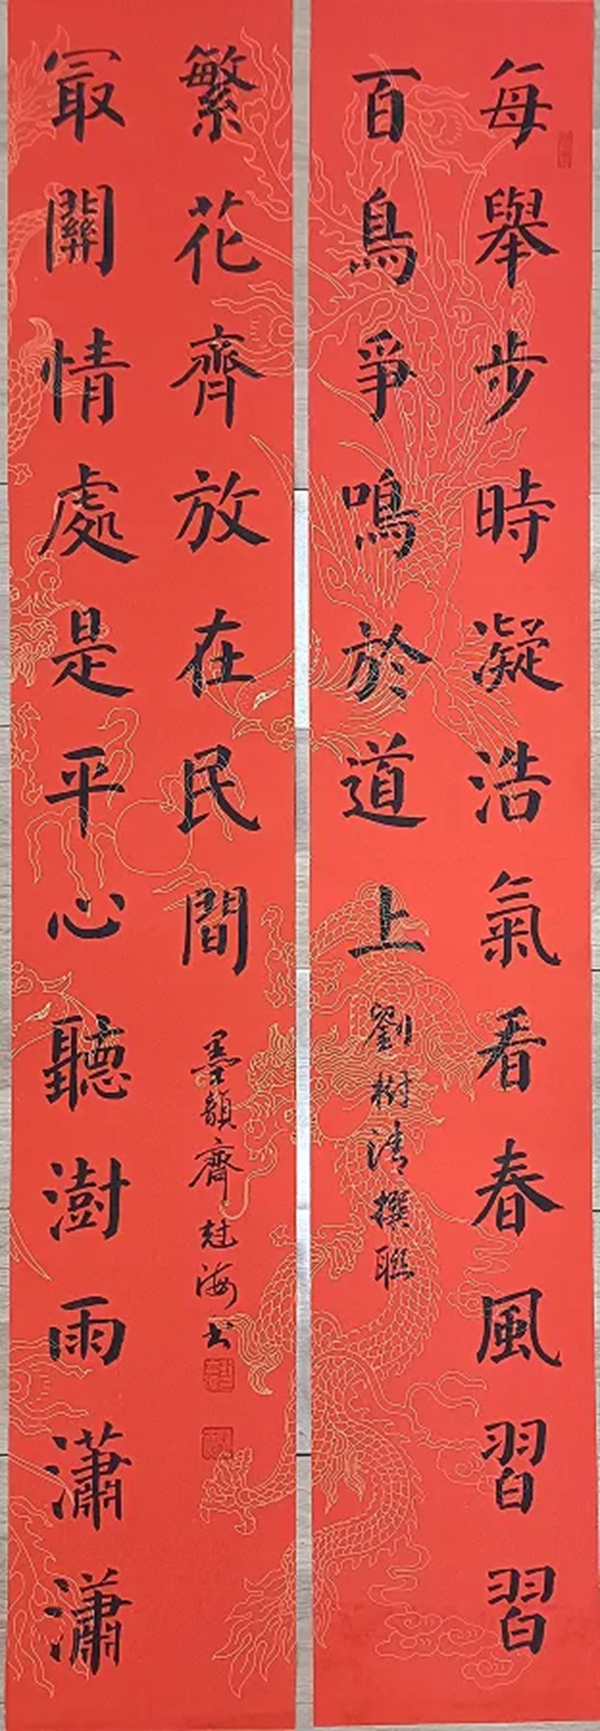 每舉步時凝浩氣看春風習習
百鳥爭鳴於道上
劉樹清撰聯
冣關情處是平心聽澍雨瀟瀟
繁花齊放在民間
墨韻齋海书